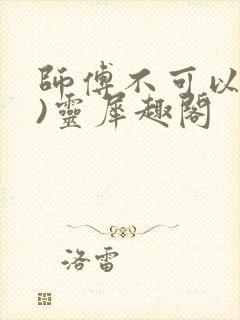 師傅不可以
)靈犀趣閣
洛雷